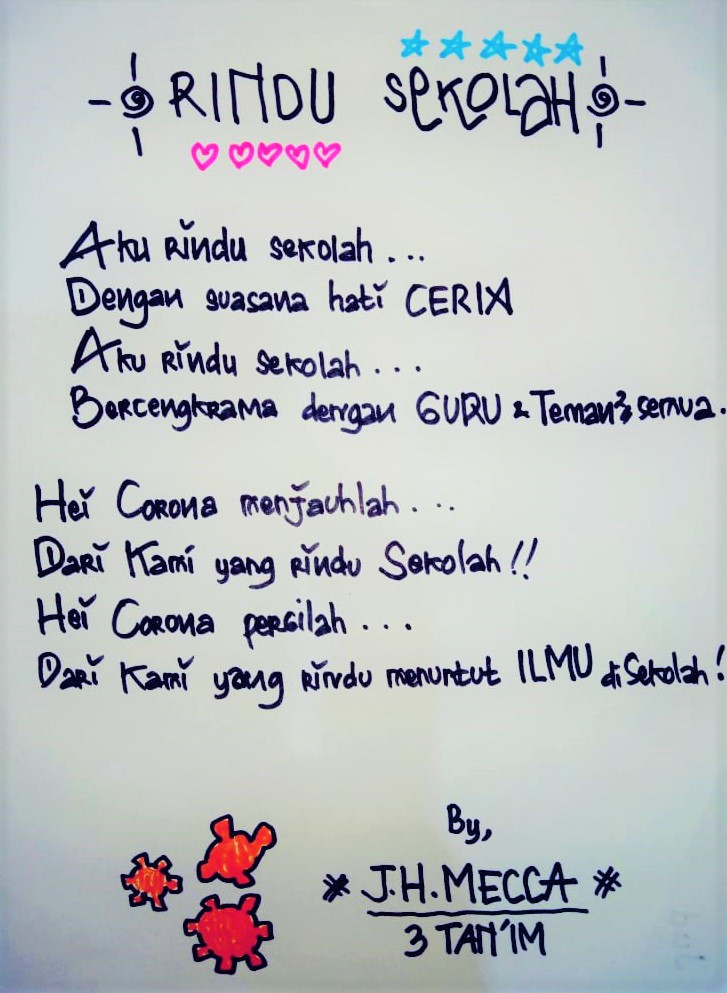 RINDU SEKOLAH
Aku Rindu sekolah...
Dengan suasana hati CERIA
Aku Rindu sekolah...
Bercengkrama dengan GURU & Teman² semua.
Hei Corona menjauhlah...
Dari Kami yang Rindu Sekolah!!
Hei Corona pergilah...
Dari Kami yang Rindu menuntut ILMU di Sekolah!
By,
* J.H.MECCA *
3 TAN'IM